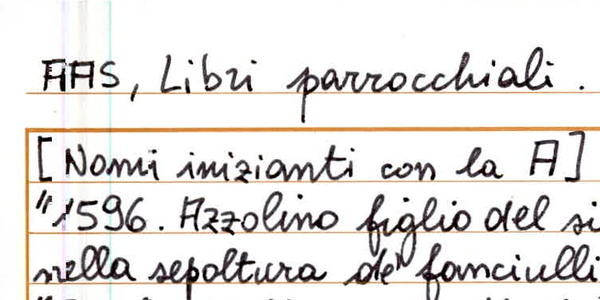 AAS, Libri parrocchiali.
[Nomi inizianti con la A]
"1596. Azzolino figlio del si
nella sepoltura de' fanciulli